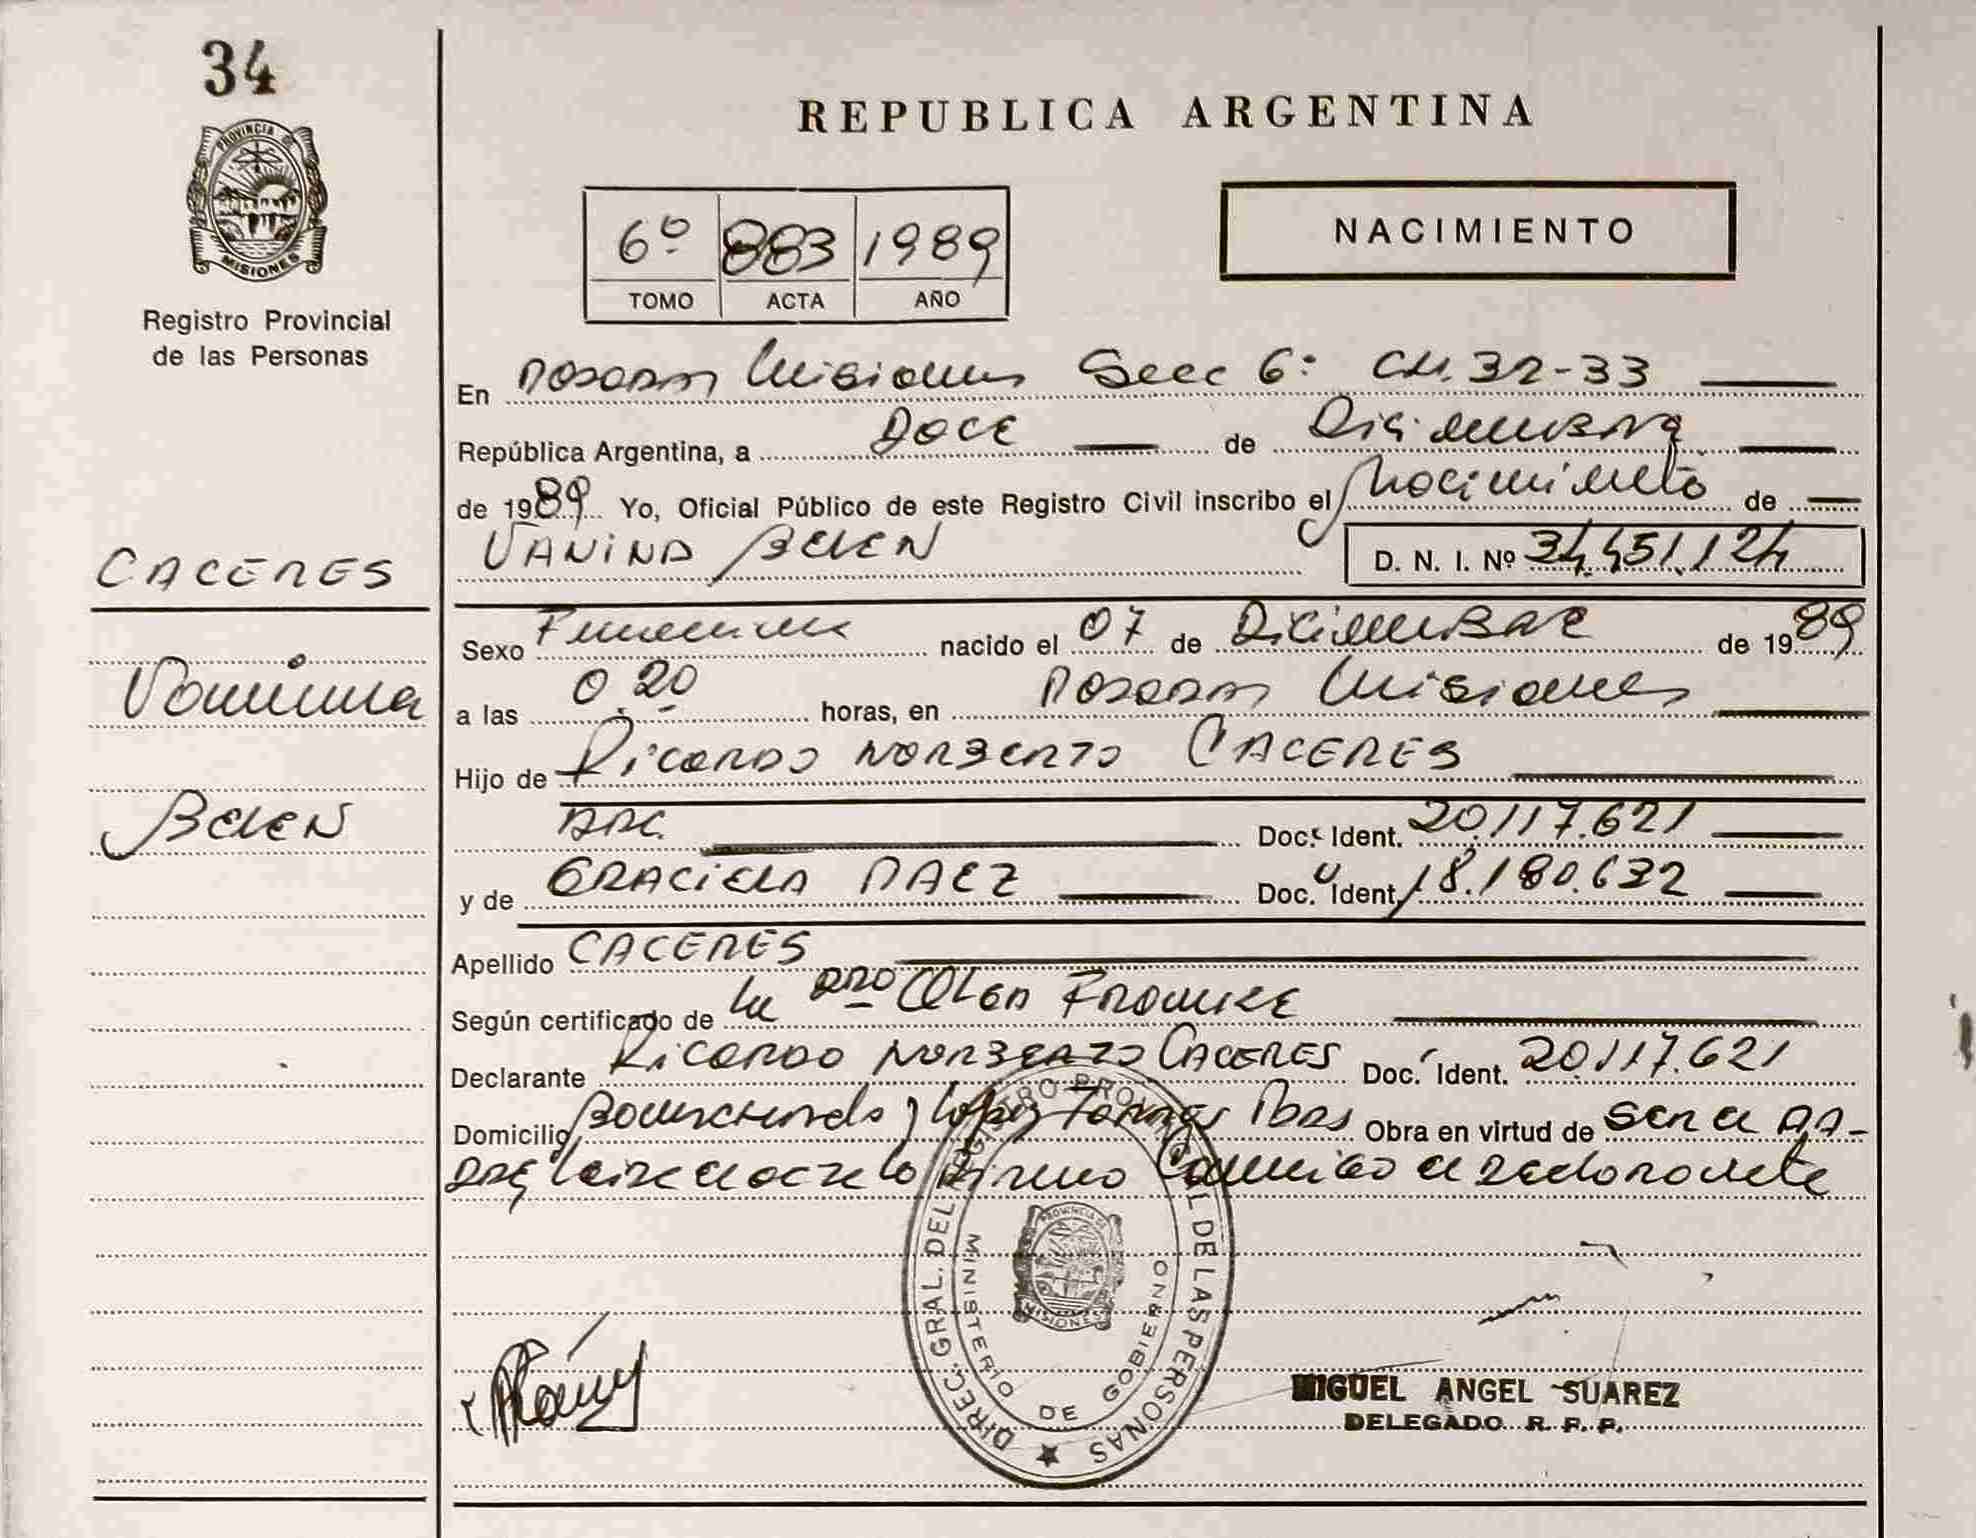 34
PROVINCIA DE
MISIONES
Registro Provincial
de las Personas
CACERES
Vanina
Belen
REPUBLICA ARGENTINA
6º 883 1989
TOMO ACTA AÑO
NACIMIENTO
En Posadas Misiones Secc 6: CH. 32-33
República Argentina, a Doce de Diciembre
de 1989 Yo, Oficial Público de este Registro Civil inscribo el Nacimiento de
VANINA BELEN D. N. I. Nº 34.451.124
Sexo Femenino nacido el 07 de Diciembre de 1989
a las 0.20 horas, en Posadas Misiones
Hijo de Ricardo NORBERTO CACERES
ARG. Doc. Ident. 20.117.621
y de GRACIELA PAEZ Doc. Ident. 18.180.632
Apellido CACERES
Según certificado de la Olga
Declarante Ricardo NORBERTO CACERES Doc. Ident. 20.117.621
Domicilio y Lopez Torres Pdas Obra en virtud de SER EL PA-
DRE Leida el acta la firmó Conmigo el declarante
DIREC. GRAL. DEL REGISTRO PROVINCIAL DE LAS PERSONAS
MINISTERIO DE GOBIERNO
PROVINCIA DE
MISIONES
MIGUEL ANGEL SUAREZ
DELEGADO R. P. P.